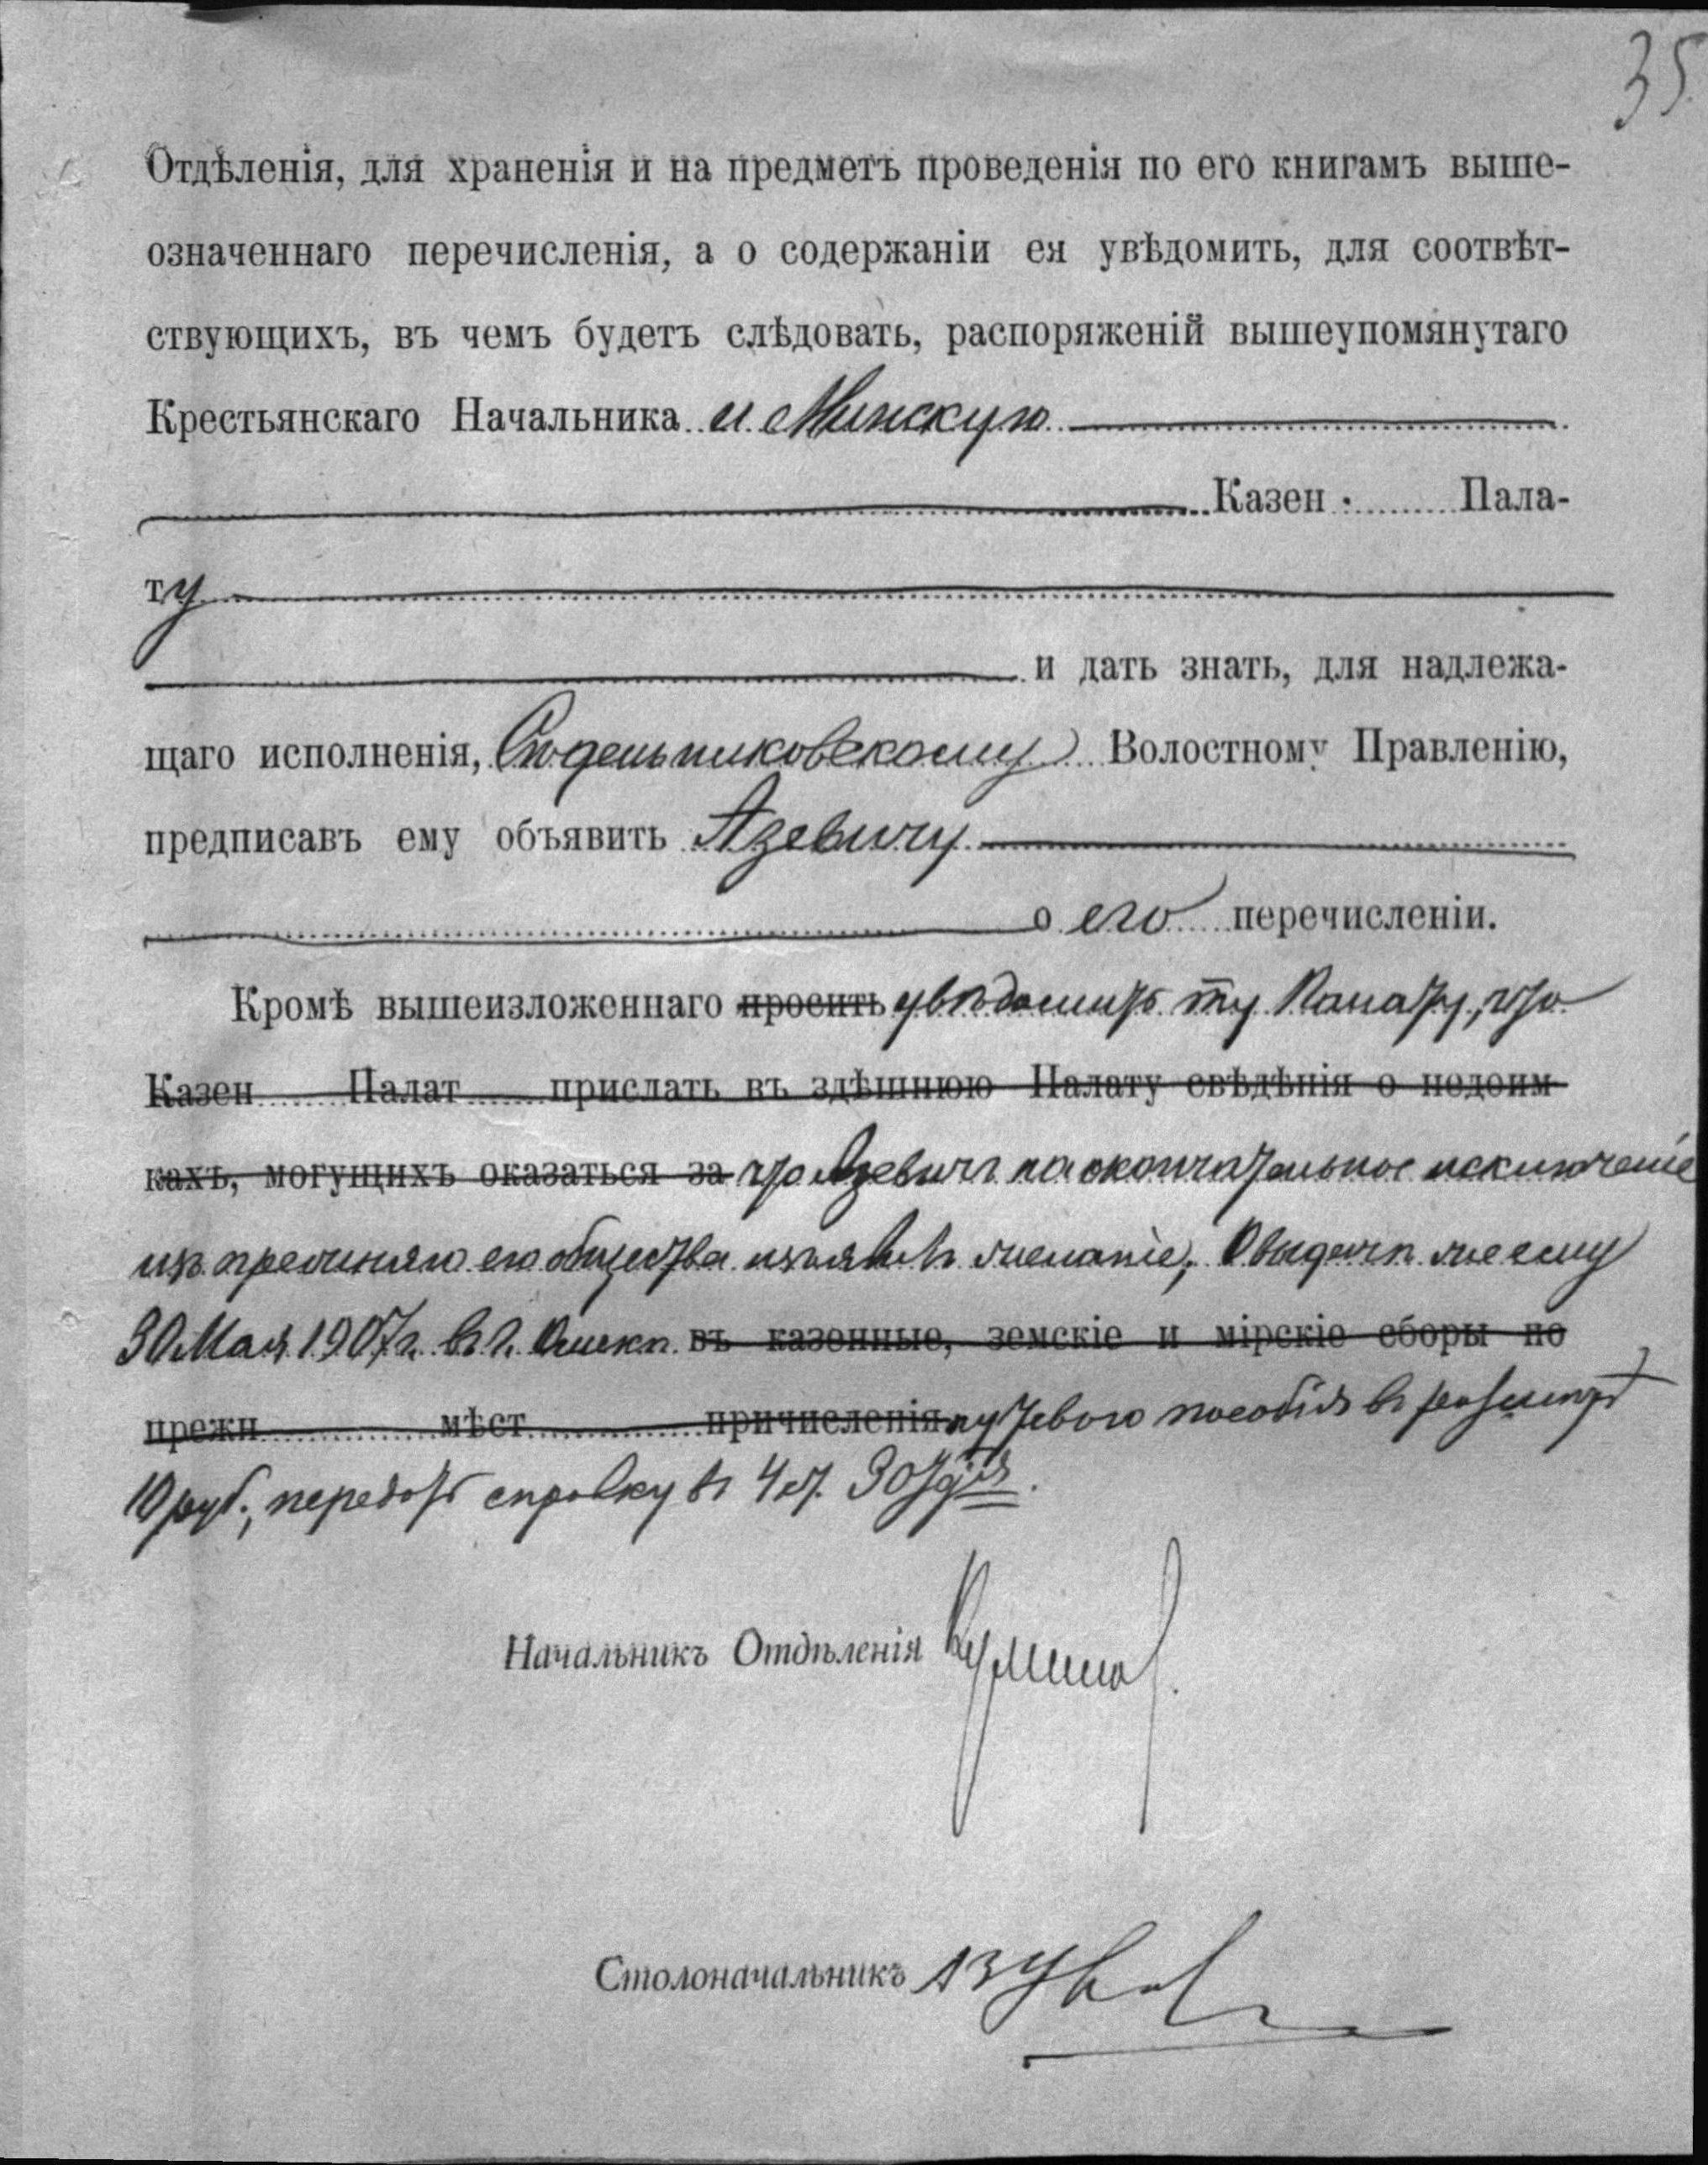 35
Отдѣленія, для храненія и на предметъ проведенія по его книгамъ выше-
означеннаго перечисленія, а о содержаніи ея увѣдомить, для соотвѣт-
ствующихъ, въ чемъ будетъ слѣдовать, распоряженій вышеупомянутаго
Крестьянскаго Начальника и Минскую
Казен. Пала-
ту
и дать знать, для надлежа-
щаго исполненія, Волостному Правленію,
предписавъ ему объявить Азевичу
о его перечисленіи.
Кромѣ вышеизложеннаго просить увѣдомить ту Палату, что
Казен Палат прислать въ здѣшнюю Палату свѣдѣнія о недоим
кахъ, могущихъ оказаться за что Азевичъ на окончательное исключеніе
изъ прежняго его общества изъявилъ желаніе; О выдачѣ же ему
30 Мая 1907 г. въ г. Омскѣ въ казенные, земскіе и мірскіе сборы по
прежн мѣст причисленія путевого пособія въ размѣрѣ
10 руб., передать справку въ 4 ст. 3 Отдѣл.
Начальникъ Отдѣленія
Столоначальникъ